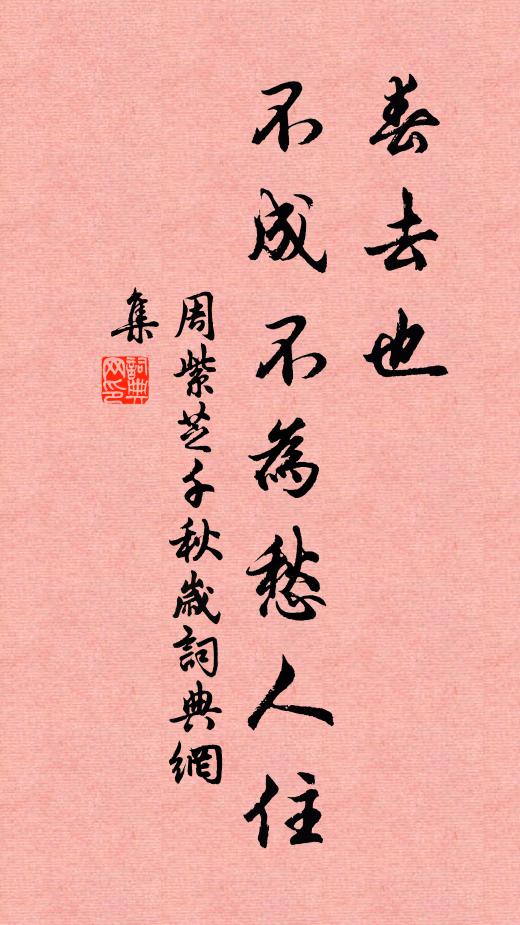 春去也
不成不為愁人住
周紫芝千秋歲詞典網
集
詞典網印